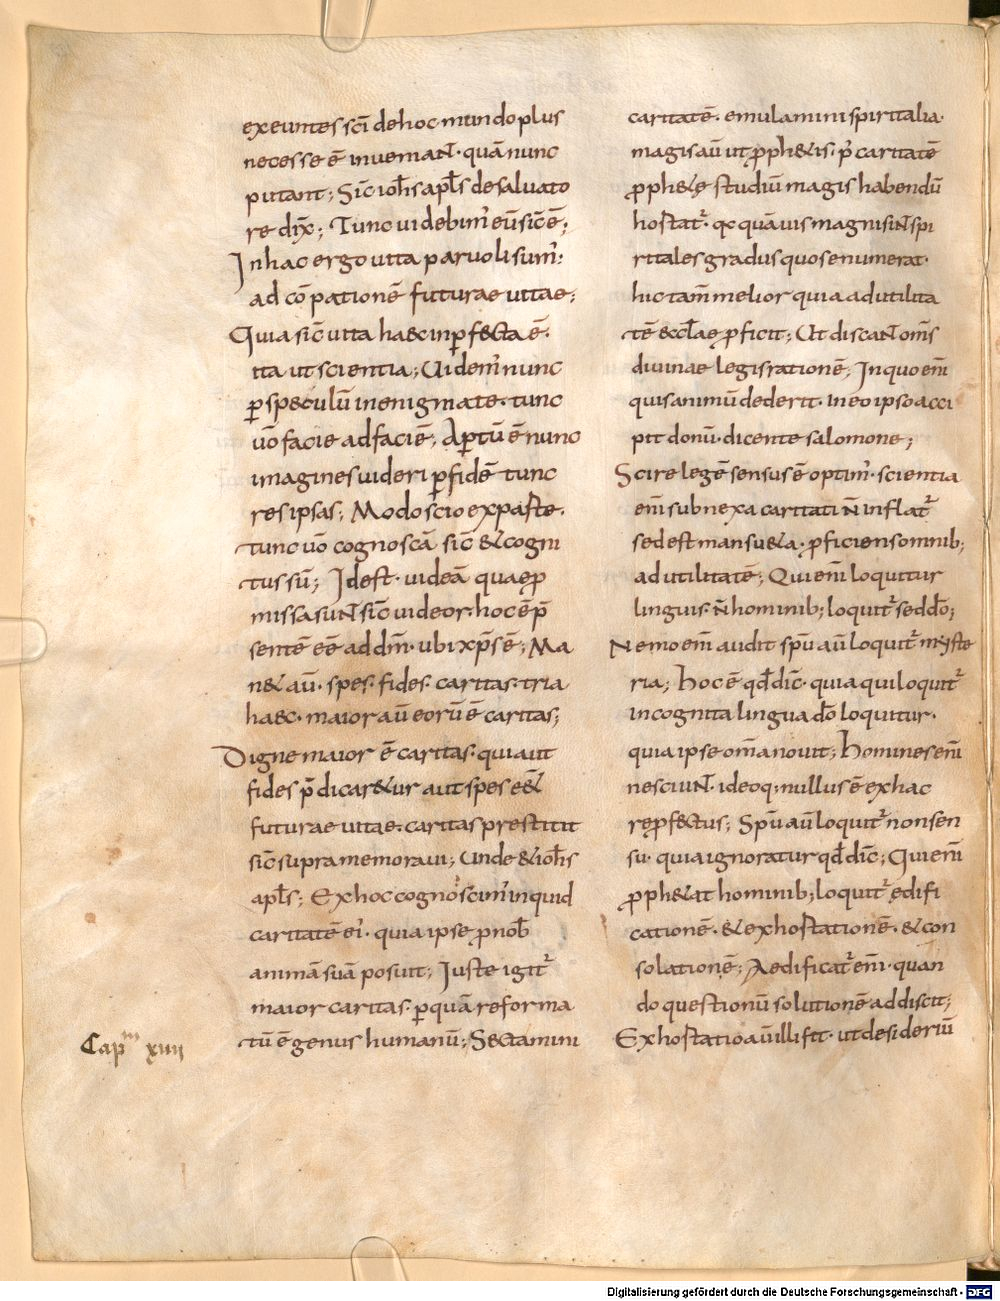 exeuntes sc̄i de hoc mundo plus
necesse ē inueniant· quā nunc
putant; Sic̄ ioh̄s apl̄s de saluato
re dix̄; Tunc uidebim' eū sic̄ ē;
In hac ergo uita paruoli sum';
ad cō pationē futurae uitae;
Quia sic̄ uita haec inꝑfecta ē·
ita ut scientia; Uidem' nunc
ꝑ speculū in enigmate· tunc
uō facie ad faciē; Aꝑtū ē nunc
imagines uideri ꝑ fidē tunc
res ipsas; Modo scio ex parte·
tunc uō cognoscā sic̄ & cogni
tus sū; Id est· uideā quae ꝓ
missa sunt sic̄ uideor· hoc ē p̄
sentē eē ad dn̄m· ubi xp̄s ē; Ma
n& aū· spes· fides· caritas· tria
haec· maior aū eorū ē caritas;
Digne maior ē caritas· quia ut
fides p̄dicar&ur aut spes e&̄
futurae uitae· caritas prestitit
sic̄ supra memoraui; Unde & ioh̄s
apl̄s; Ex hoc cognoscim' inquid
caritatē ei'· quia ipse ꝓ nob̄
animā suā posuit; Iuste igit̄
maior caritas· ꝑ quā reforma
tū ē genus humanū; Sectamini
Cap^m xiiii
caritatē· emulamini spiritalia·
magis aū ut ꝓph&is· p' caritatē
ꝓph&ę studiū magis habendū
hostat̄· qc quāuis magni sint spi
ritales gradus quos enumerat·
hic tam̄ melior quia ad utilita
tē eccl̄ae ꝓficit; Ut discant om̄s
diuinae legis rationē; In quo eni̅
quis animū dederit· in eo ipso acci
pit donū· dicente salomone;
Scire legē sensus ē optim'· scientia
eni̅ subnexa caritati n̄ inflat̄
sed est mansu&a· ꝓficiens omnib;
ad utilitatē; Qui eni̅ loquitur
linguis· n̄ hominib; loquit̄ sed dō;
Nemo eni̅ audit sp̄u aū loquit̄ myste
ria; Hoc ē qd̄ dic̄· quia qui loquit̄
incognita lingua dō loquitur·
quia ipse om̄a nouit; Homines eni̅
nesciunt· ideoq; nullus ē ex hac
re ꝓfectus; Sp̄u aū loquit̄ non sen
su· quia ignoratur qd̄ dic̄; Qui eni̅
ꝓph&at hominib; loquit̄ ędifi
cationē· & exhostationē· & con
solationē; Aedificat̄ eni̅· quan
do questionū solutionē addiscit;
Exhostatio aū illi fit· ut desideriū
Digitalisierung gefördert durch die Deutsche Forschungsgemeinschaft - DFG